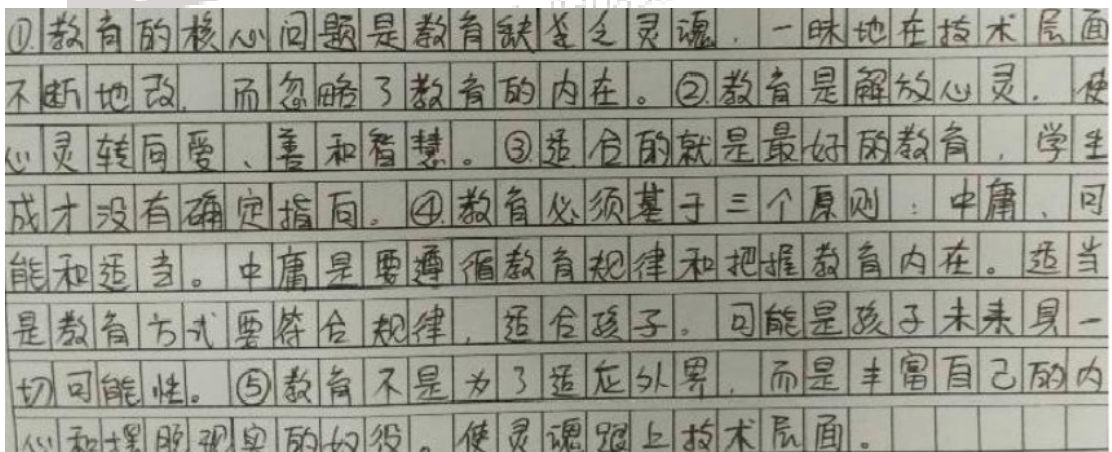 ①.教育的核心问题是教育缺乏灵魂.一昧地在技术层面
不断地改.而忽略了教育的内在。②.教育是解放心灵.使
心灵转向爱、善和智慧。③.适合的就是最好的教育,学生
成才没有确定指向。④.教育必须基于三个原则:中庸、可
能和适当。中庸是要遵循教育规律和把握教育内在。适当
是教育方式要符合规律,适合孩子。可能是孩子未来具一
切可能性。⑤教育不是为了适应外界,而是丰富自己的内
心和摆脱现实的奴役。使灵魂跟上技术层面。